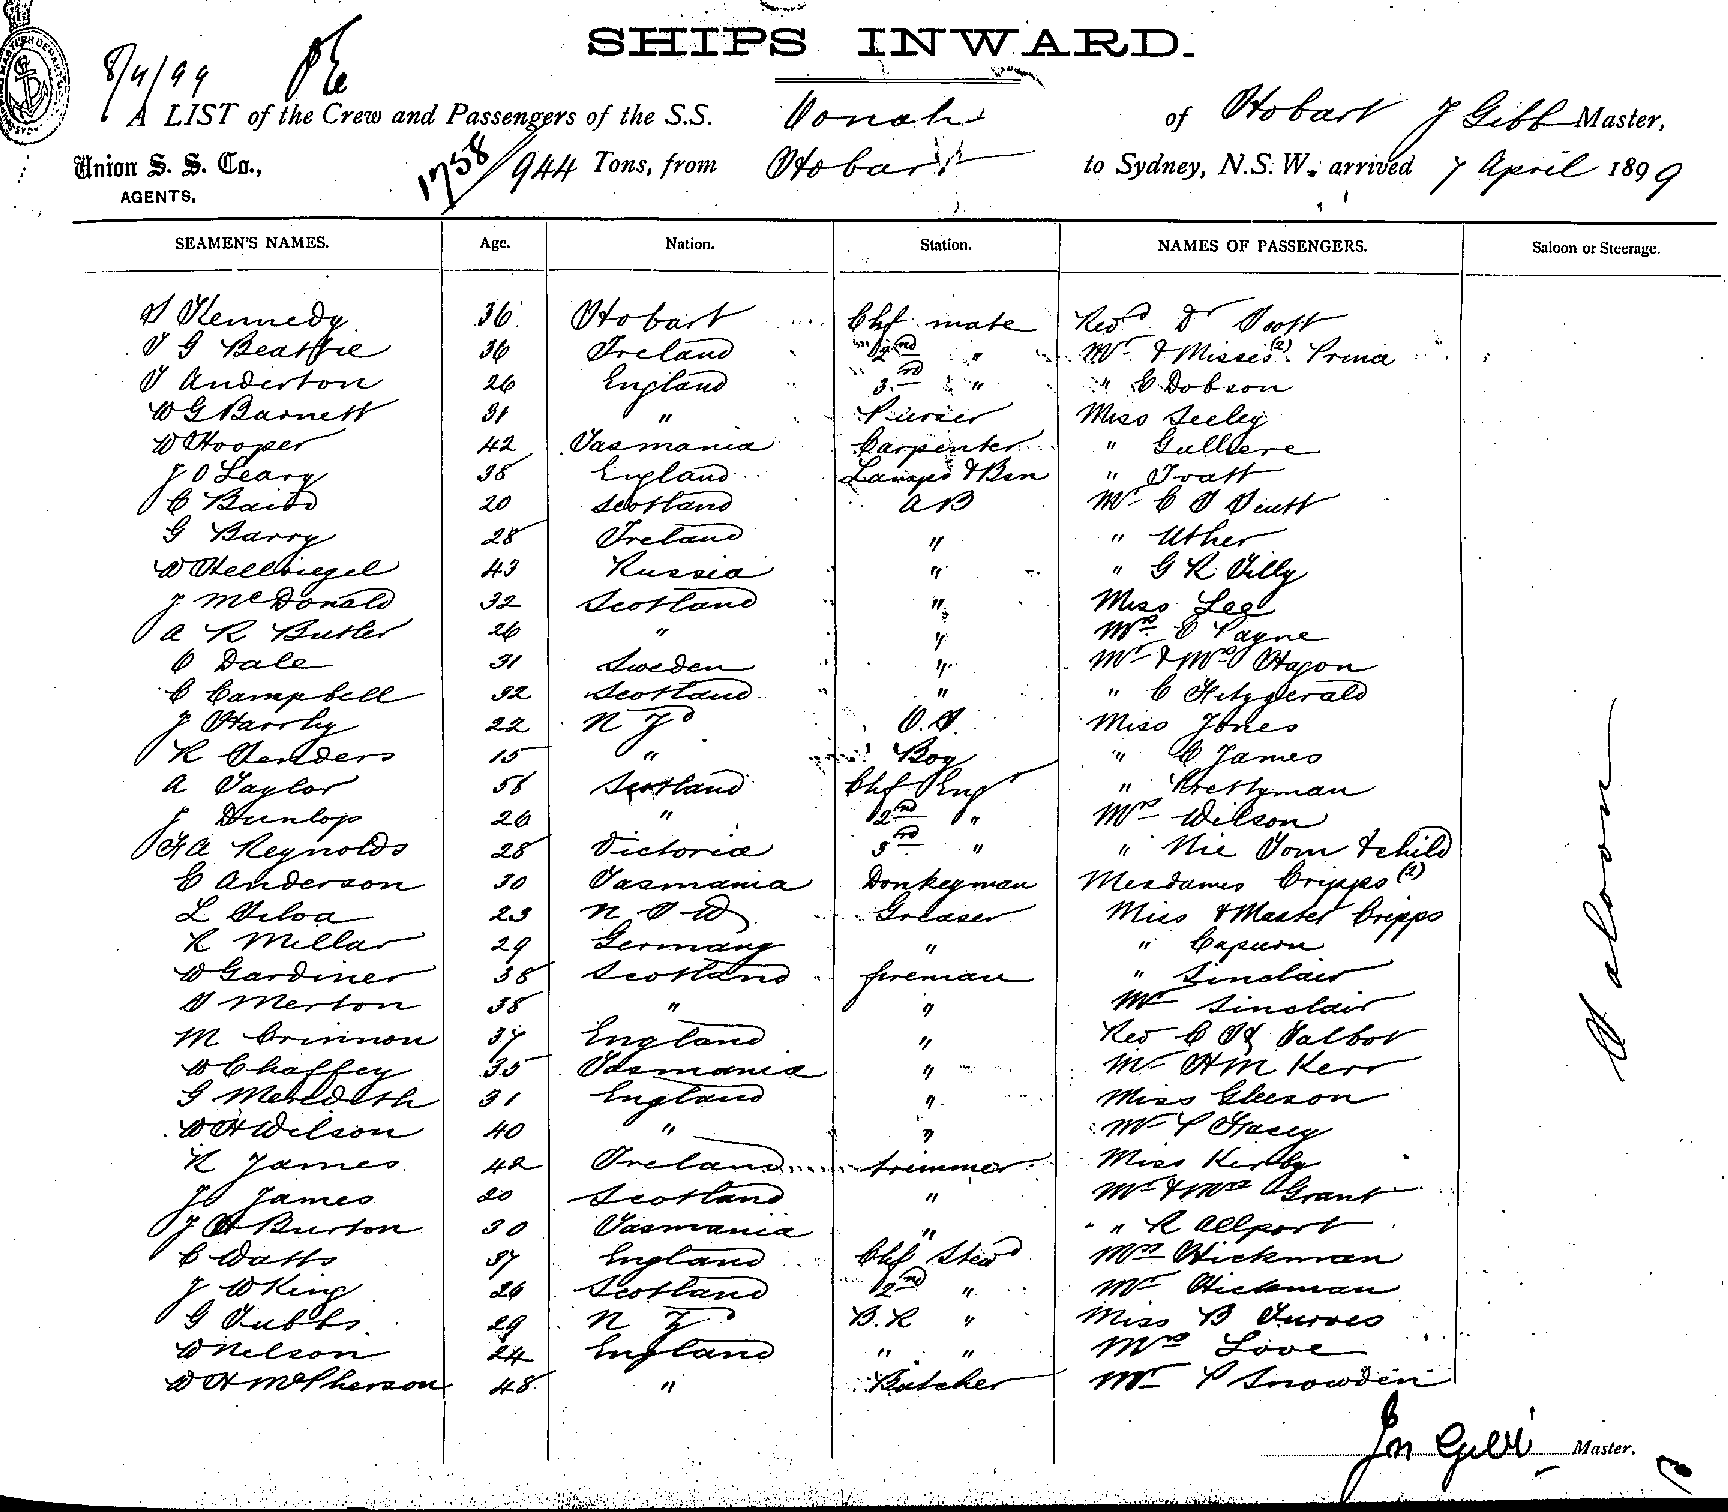 SHIPS INWARD.
8/4/99
A LIST of the Crew and Passengers of the S.S. Oonah of Hobart J Gibb Master,
Union S. S. Co., 1758/944 Tons, from Hobart to Sydney, N.S.W. arrived 7 April 1899
AGENTS.
SEAMEN'S NAMES. Age. Nation. Station. NAMES OF PASSENGERS. Saloon or Steerage.
S Kennedy 36 Hobart Chf mate Revd Dr Scott
T G Beattie 36 Ireland 2nd " Mr & Misses (2) Prina
T Anderton 26 England 3rd " " C Dobson
W G Barnett 31 " Purser Miss Seeley
W Hooper 42 Tasmania Carpenter "
J O Leary 38 England Lamps & Bsn "
C Baird 20 Scotland A B Mr C S
G Barry 28 Ireland " " Uther
W Hellwegel 43 Russia " " G R Tilly
J McDonald 32 Scotland " Miss Lee
A R Butler 26 " " Mrs C Payne
C Dale 31 Sweden " Mr & Mrs Hagon
C Campbell 32 Scotland " " C Fitzgerald
J Harrhy 22 N Zd O.S. Miss Jones
R Senders 15 " Boy " C James
A Taylor 58 Scotland Chf Engr " Prettyman
J Dunlop 26 " 2nd " Mrs Wilson
F A Reynolds 28 Victoria 3rd " " Nie Tom & child
C Anderson 30 Tasmania Donkeyman Mesdames Cripps (2)
L Silva 23 N S W Greaser Miss & Master Cripps
R Millar 29 Germany " " Capurn
W Gardiner 38 Scotland fireman " Sinclair
S Merton 38 " " Mr Sinclair
M Crinnon 37 England " Rev C H Talbot
W Chaffey 35 Tasmania " Mr H M Kerr
G Meredith 31 England " Miss Gleeson
W H Wilson 40 " " Mr P Facey
R James 42 Ireland trimmer Miss Kerby
Jo James 20 Scotland " Mr & Mrs Grant
J H Burton 30 Tasmania " " R Allport
C Watts 37 England Chf Stewd Mrs Hickman
J W King 26 Scotland 2nd " Mr Hickman
G Tubbs 29 N Zd B.R " Miss B Purves
W Nelson 24 England " " Mrs Love
W H McPherson 48 " Butcher Mr P Snowden
Saloon
Jn Gibb Master.